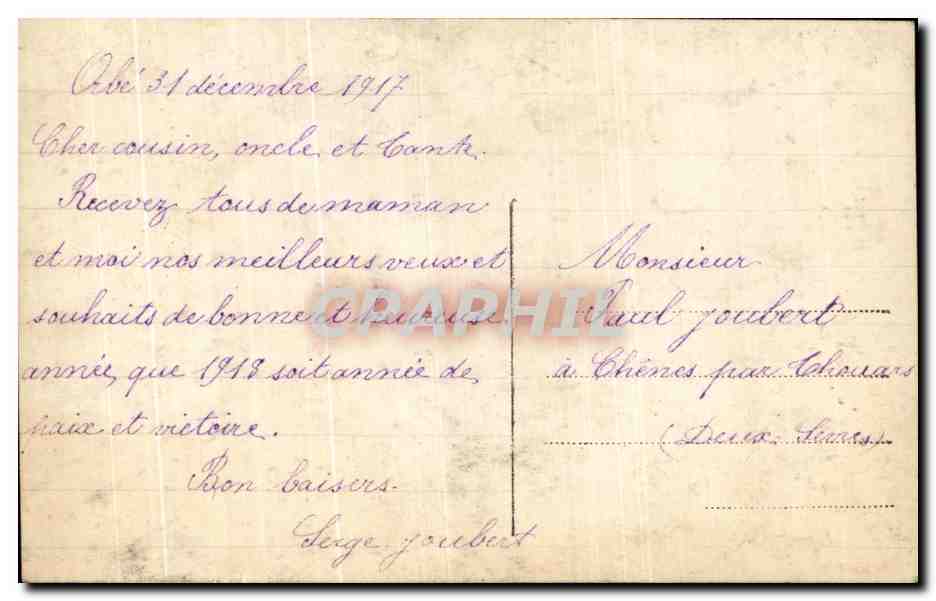 Orbé 31 décembre 1917
Cher cousin, oncle et tante.
Recevez tous de maman
et moi nos meilleurs veux et
souhaits de bonne et heureuse
année, que 1918 soit année de
paix et victoire.
Bon baisers.
Serge Joubert
Monsieur
Paul Joubert
à Chênes par Thouars
(Deux-Sèvres)
CRAPHIL